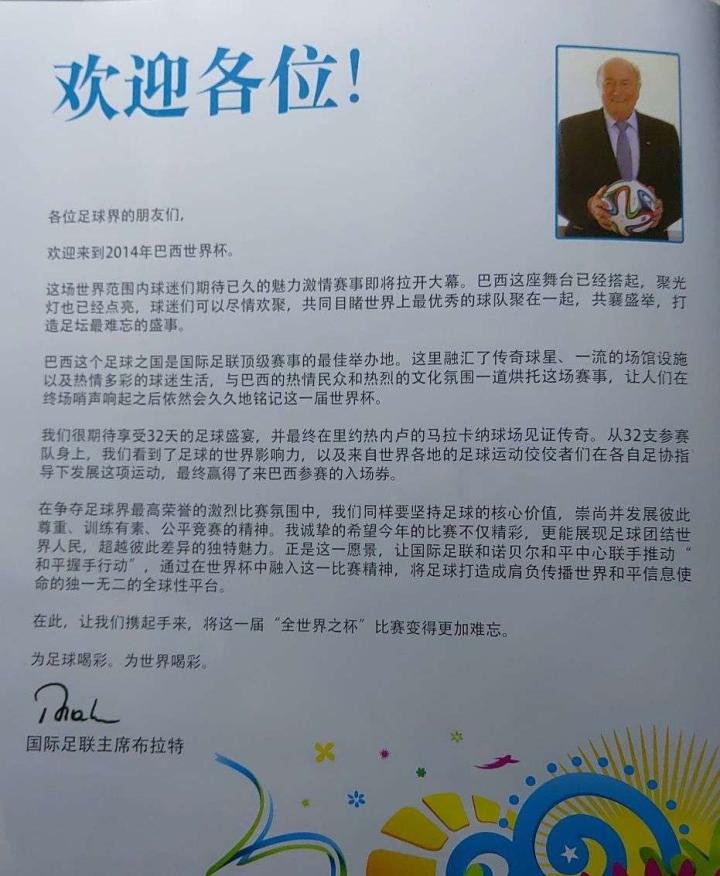 欢迎各位！
各位足球界的朋友们，
欢迎来到2014年巴西世界杯。
这场世界范围内球迷们期待已久的魅力激情赛事即将拉开大幕。巴西这座舞台已经搭起，聚光
灯也已经点亮，球迷们可以尽情欢聚，共同目睹世界上最优秀的球队聚在一起，共襄盛举，打
造足坛最难忘的盛事。
巴西这个足球之国是国际足联顶级赛事的最佳举办地。这里融汇了传奇球星、一流的场馆设施
以及热情多彩的球迷生活，与巴西的热情民众和热烈的文化氛围一道烘托这场赛事，让人们在
终场哨声响起之后依然会久久地铭记这一届世界杯。
我们很期待享受32天的足球盛宴，并最终在里约热内卢的马拉卡纳球场见证传奇。从32支参赛
队身上，我们看到了足球的世界影响力，以及来自世界各地的足球运动佼佼者们在各自足协指
导下发展这项运动，最终赢得了来巴西参赛的入场券。
在争夺足球界最高荣誉的激烈比赛氛围中，我们同样要坚持足球的核心价值，崇尚并发展彼此
尊重、训练有素、公平竞赛的精神。我诚挚的希望今年的比赛不仅精彩，更能展现足球团结世
界人民，超越彼此差异的独特魅力。正是这一愿景，让国际足联和诺贝尔和平中心联手推动“
和平握手行动”，通过在世界杯中融入这一比赛精神，将足球打造成肩负传播世界和平信息使
命的独一无二的全球性平台。
在此，让我们携起手来，将这一届“全世界之杯”比赛变得更加难忘。
为足球喝彩。为世界喝彩。
国际足联主席布拉特